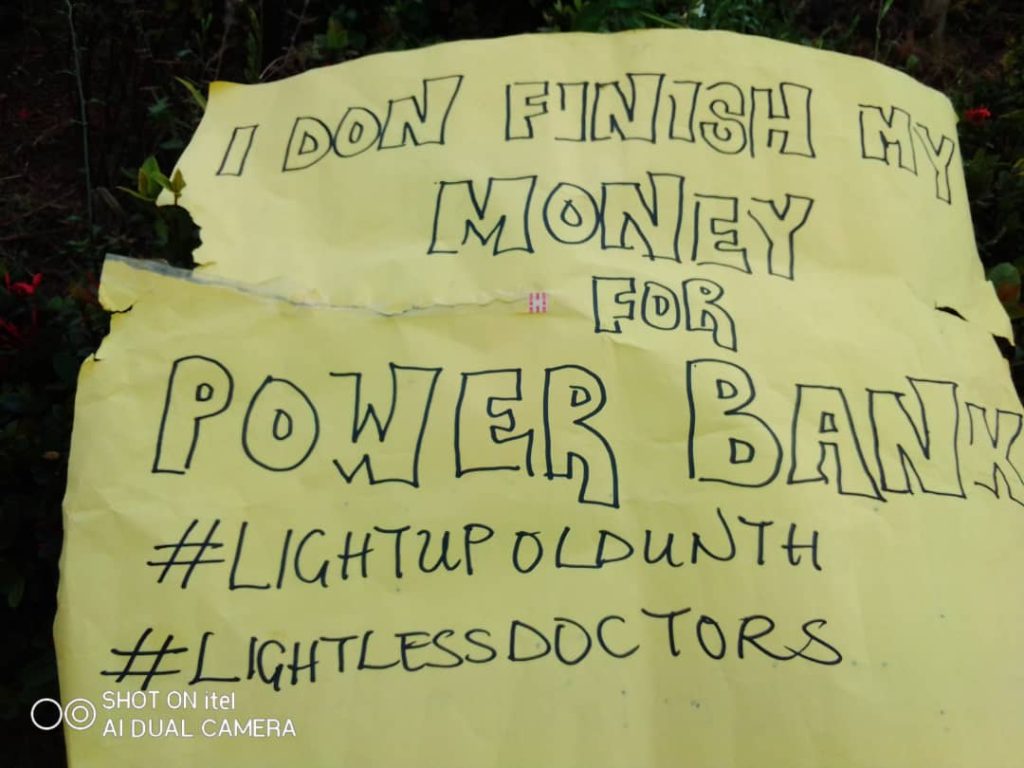 I DON FINISH MY
MONEY
FOR
POWER BANK
#LIGHTUPOLDUNTH
#LIGHTLESSDOCTORS
SHOT ON itel
AI DUAL CAMERA